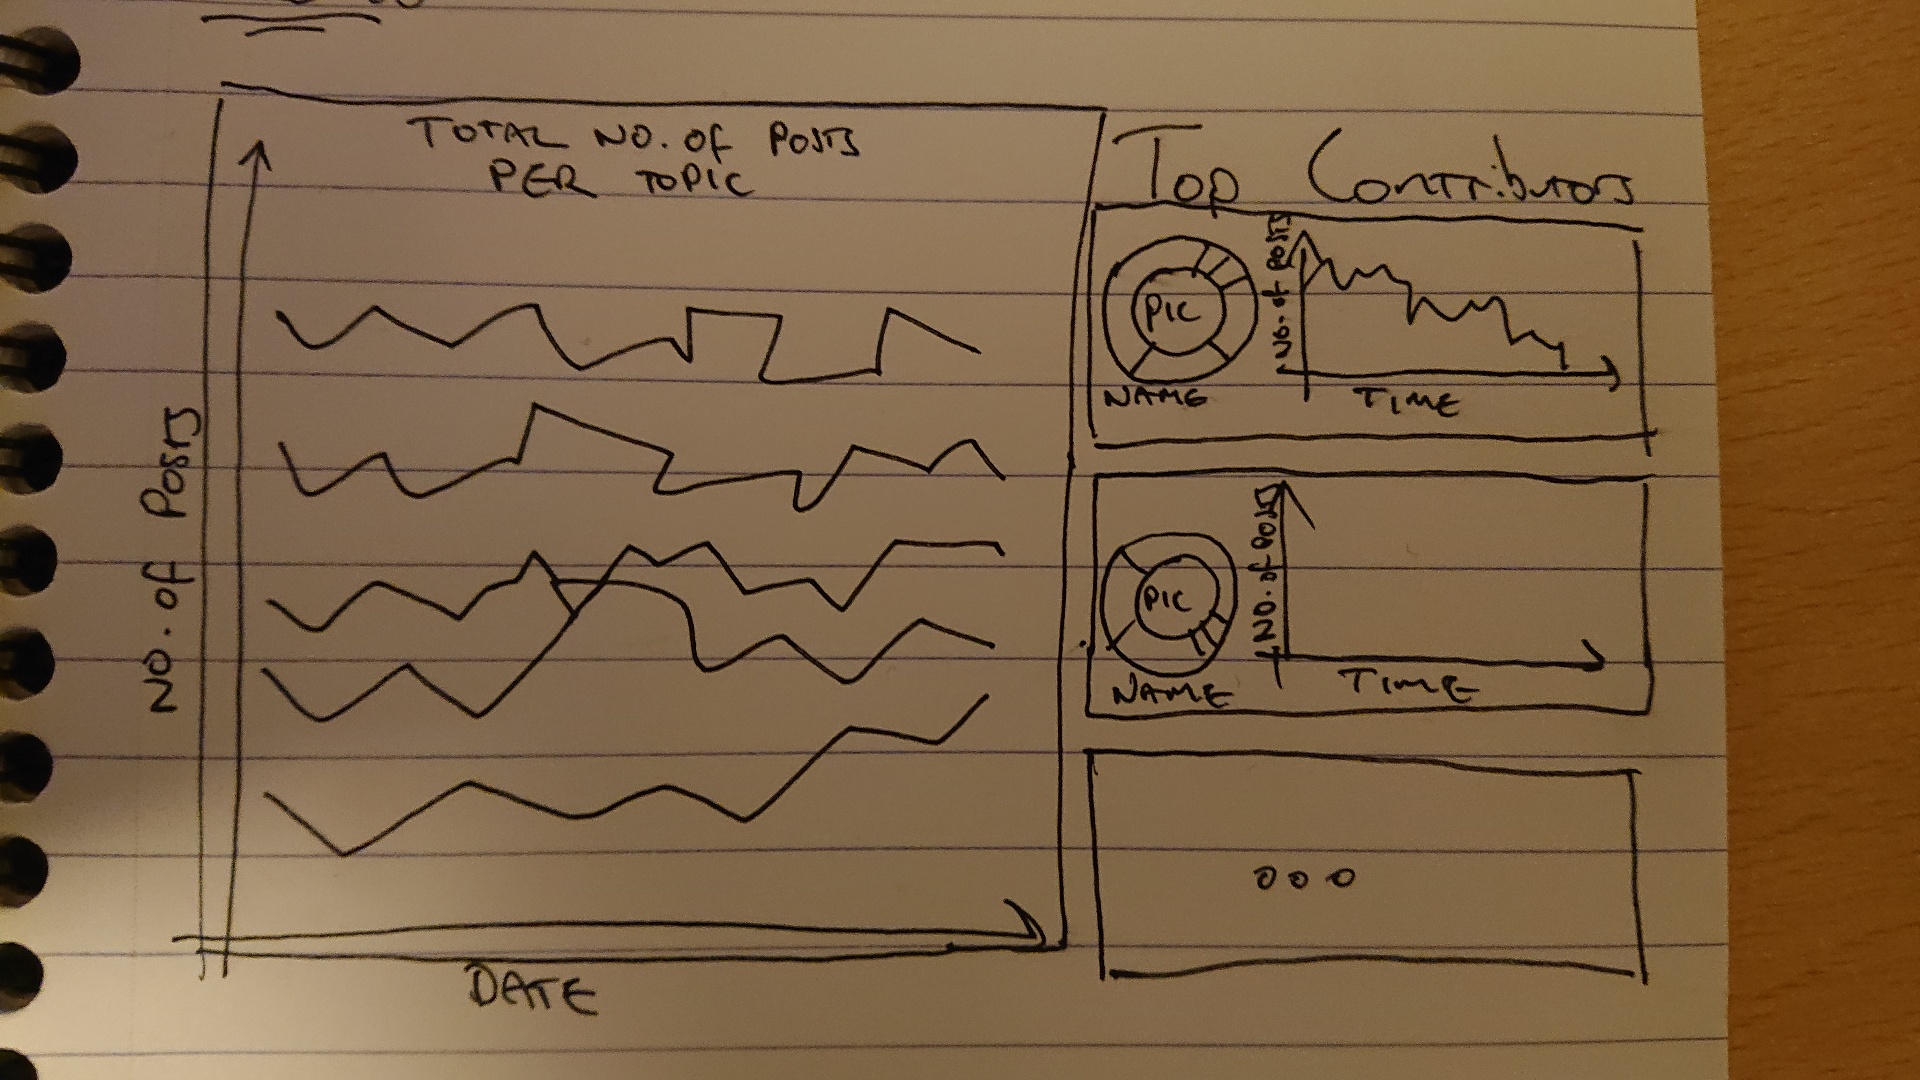 TOTAL NO. OF POSTS
PER TOPIC
NO. OF POSTS
DATE
Top Contributors
PIC
NAME
NO. OF POSTS
TIME
PIC
NAME
NO. OF POSTS
TIME